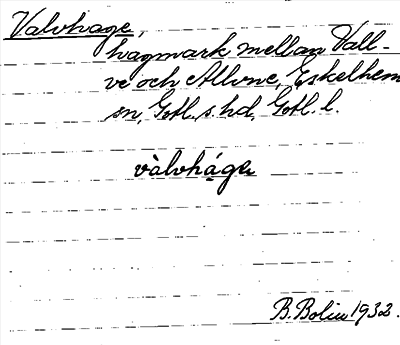 Valvhage,
hagmark mellan Vall-
ve och Allvne, Eskelhem
sn, Gotl. s. hd, Gotl. l.
vàlvhá̱ge
B. Bolin 1932.